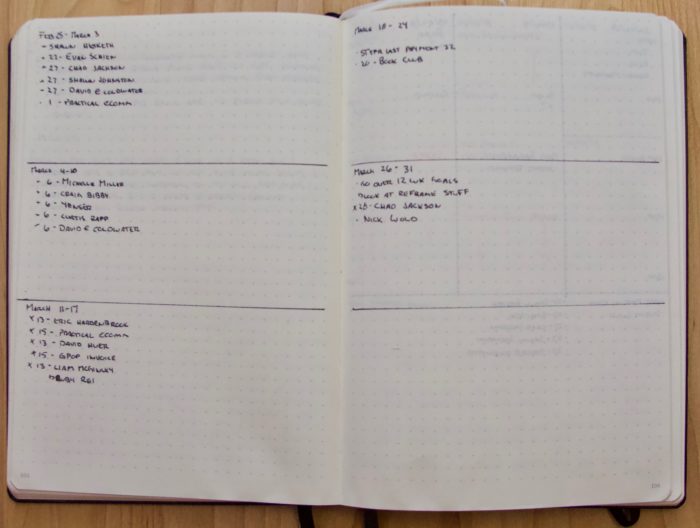 Feb 25 - March 3
- Shawn Hesketh
- 27 - Evan Schein
- 27 - Chad Jackson
- 27 - Shawn Johnston
- 27 - David @ Coldwater
· 1 - Practical Ecomm
March 4-10
- 6 - Michelle Miller
- 6 - Craig Bibby
- 6 -
- 6 - Curtis Rapp
- 6 - David @ Coldwater
March 11-17
x 13 - Eric Hardenbrook
x 15 - Practical Ecomm
x 13 - David Huer
x 15 - GPOP Invoice
x 13 - Liam
March 18 - 24
· Last Payment 22
· 20 - Book Club
March 26 - 31
· Go over 12 wk goals
Look at Reframe stuff
x 28 - Chad Jackson
· Nick Wolo